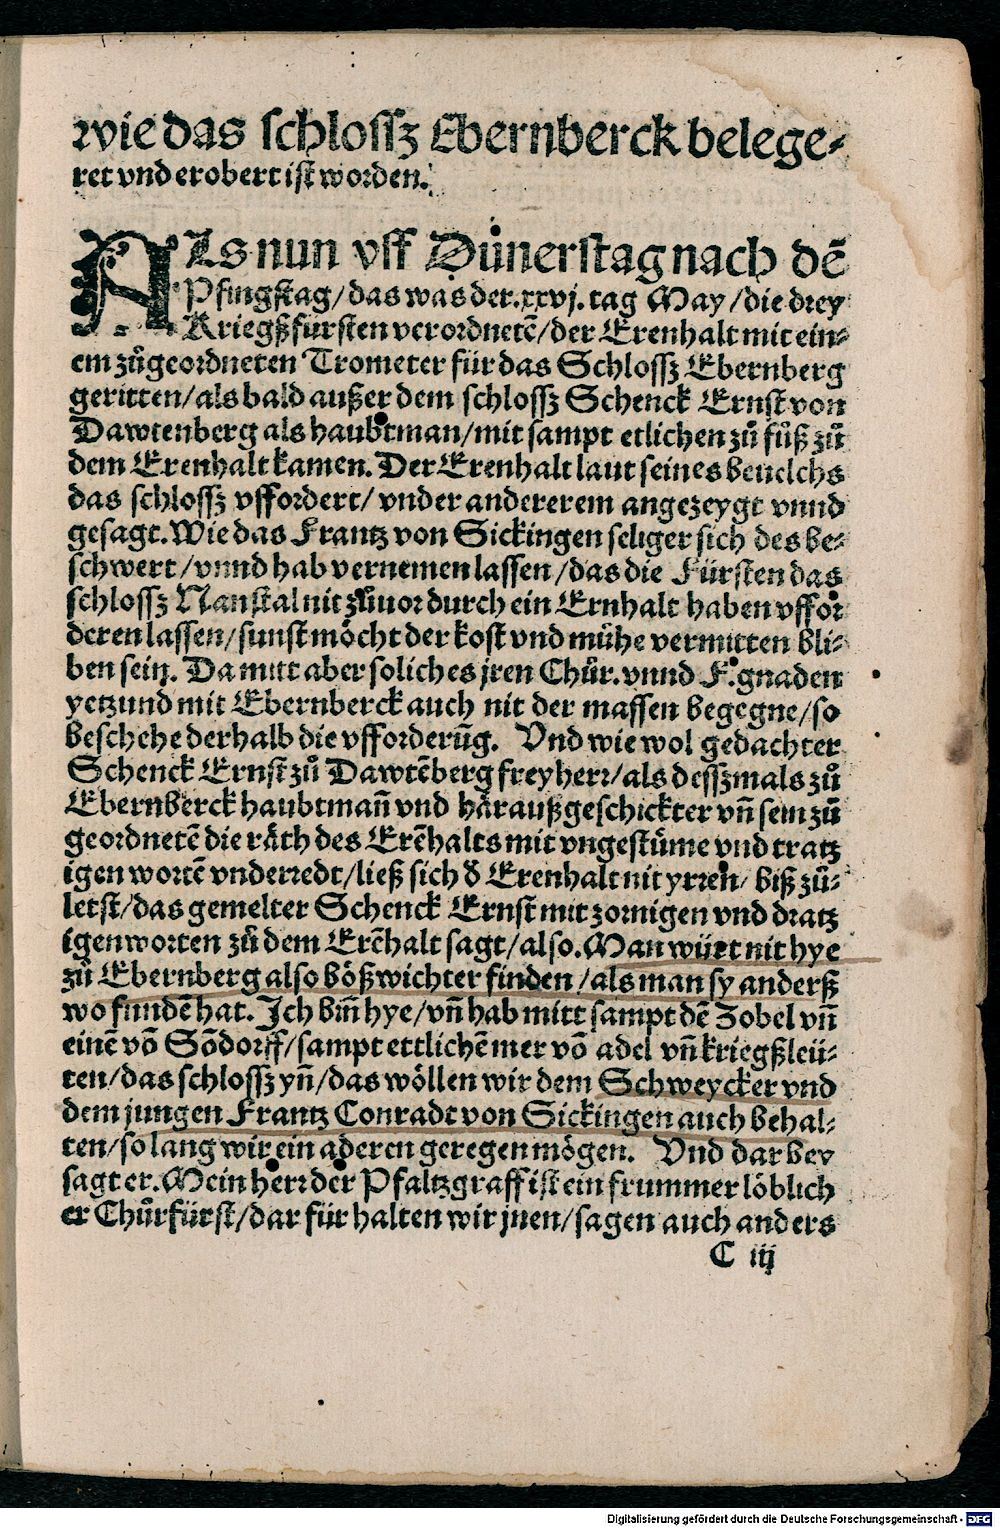 wie das schlossz Ebernberck belege⸗
ret vnd erobert ist worden.
ALs nun vff Důnerstag nach dẽ
Pfingstag/das was der.xxvj.tag May/die drey
Kriegßfürsten verordnetẽ/der Erenhalt mit ein⸗
em zůgeordneten Trometer für das Schlossz Ebernberg
geritten/als bald außer dem schlossz Schenck Ernst von
Dawtenberg als haubtman/mit sampt etlichen zů fůß zů
dem Erenhalt kamen. Der Erenhalt laut seines beuelchs
das schlossz vffordert/vnder andererem angezeygt vnnd
gesagt. Wie das Frantz von Sickingen seliger sich des be⸗
schwert/vnnd hab vernemen lassen/das die Fürsten das
schlossz Nanstal nit zůuor durch ein Ernhalt haben vffor
deren lassen/sunst möcht der kost vnd mühe vermitten bli⸗
ben sein. Da mitt aber soliches jren Chůr. vnnd F. gnaden
yetzund mit Ebernberck auch nit der massen begegne/so
beschehe derhalb die vfforderũg. Vnd wie wol gedachter
Schenck Ernst zů Dawtẽberg freyherr/als desszmals zů
Ebernberck haubtmañ vnd häraußgeschickter vñ sein zů
geordnetẽ die räth des Erẽhalts mit vngestüme vnd tratz
igen wortẽ vnderredt/ließ sich ð Erenhalt nit yrren/ biß zů⸗
letst/das gemelter Schenck Ernst mit zornigen vnd dratz
igen worten zů dem Erẽhalt sagt/also. Man würt nit hye
zů Ebernberg also bößwichter finden/als man sy anderß
wo fundẽ hat. Ich biñ hye/vñ hab mitt sampt dẽ Zobel vñ
einẽ võ Sõdorff/sampt ettlichẽ mer võ adel vñ kriegßleü⸗
ten/das schlossz yñ/das wöllen wir dem Schweycker vnd
dem jungen Frantz Conradt von Sickingen auch behal⸗
ten/so lang wir ein aderen geregen mögen. Vnd dar bey
sagt er. Mein herr der Pfaltzgraff ist ein frummer löblich
er Chůrfürst/dar für halten wir jnen/sagen auch anders
C iij
Digitalisierung gefördert durch die Deutsche Forschungsgemeinschaft - DFG